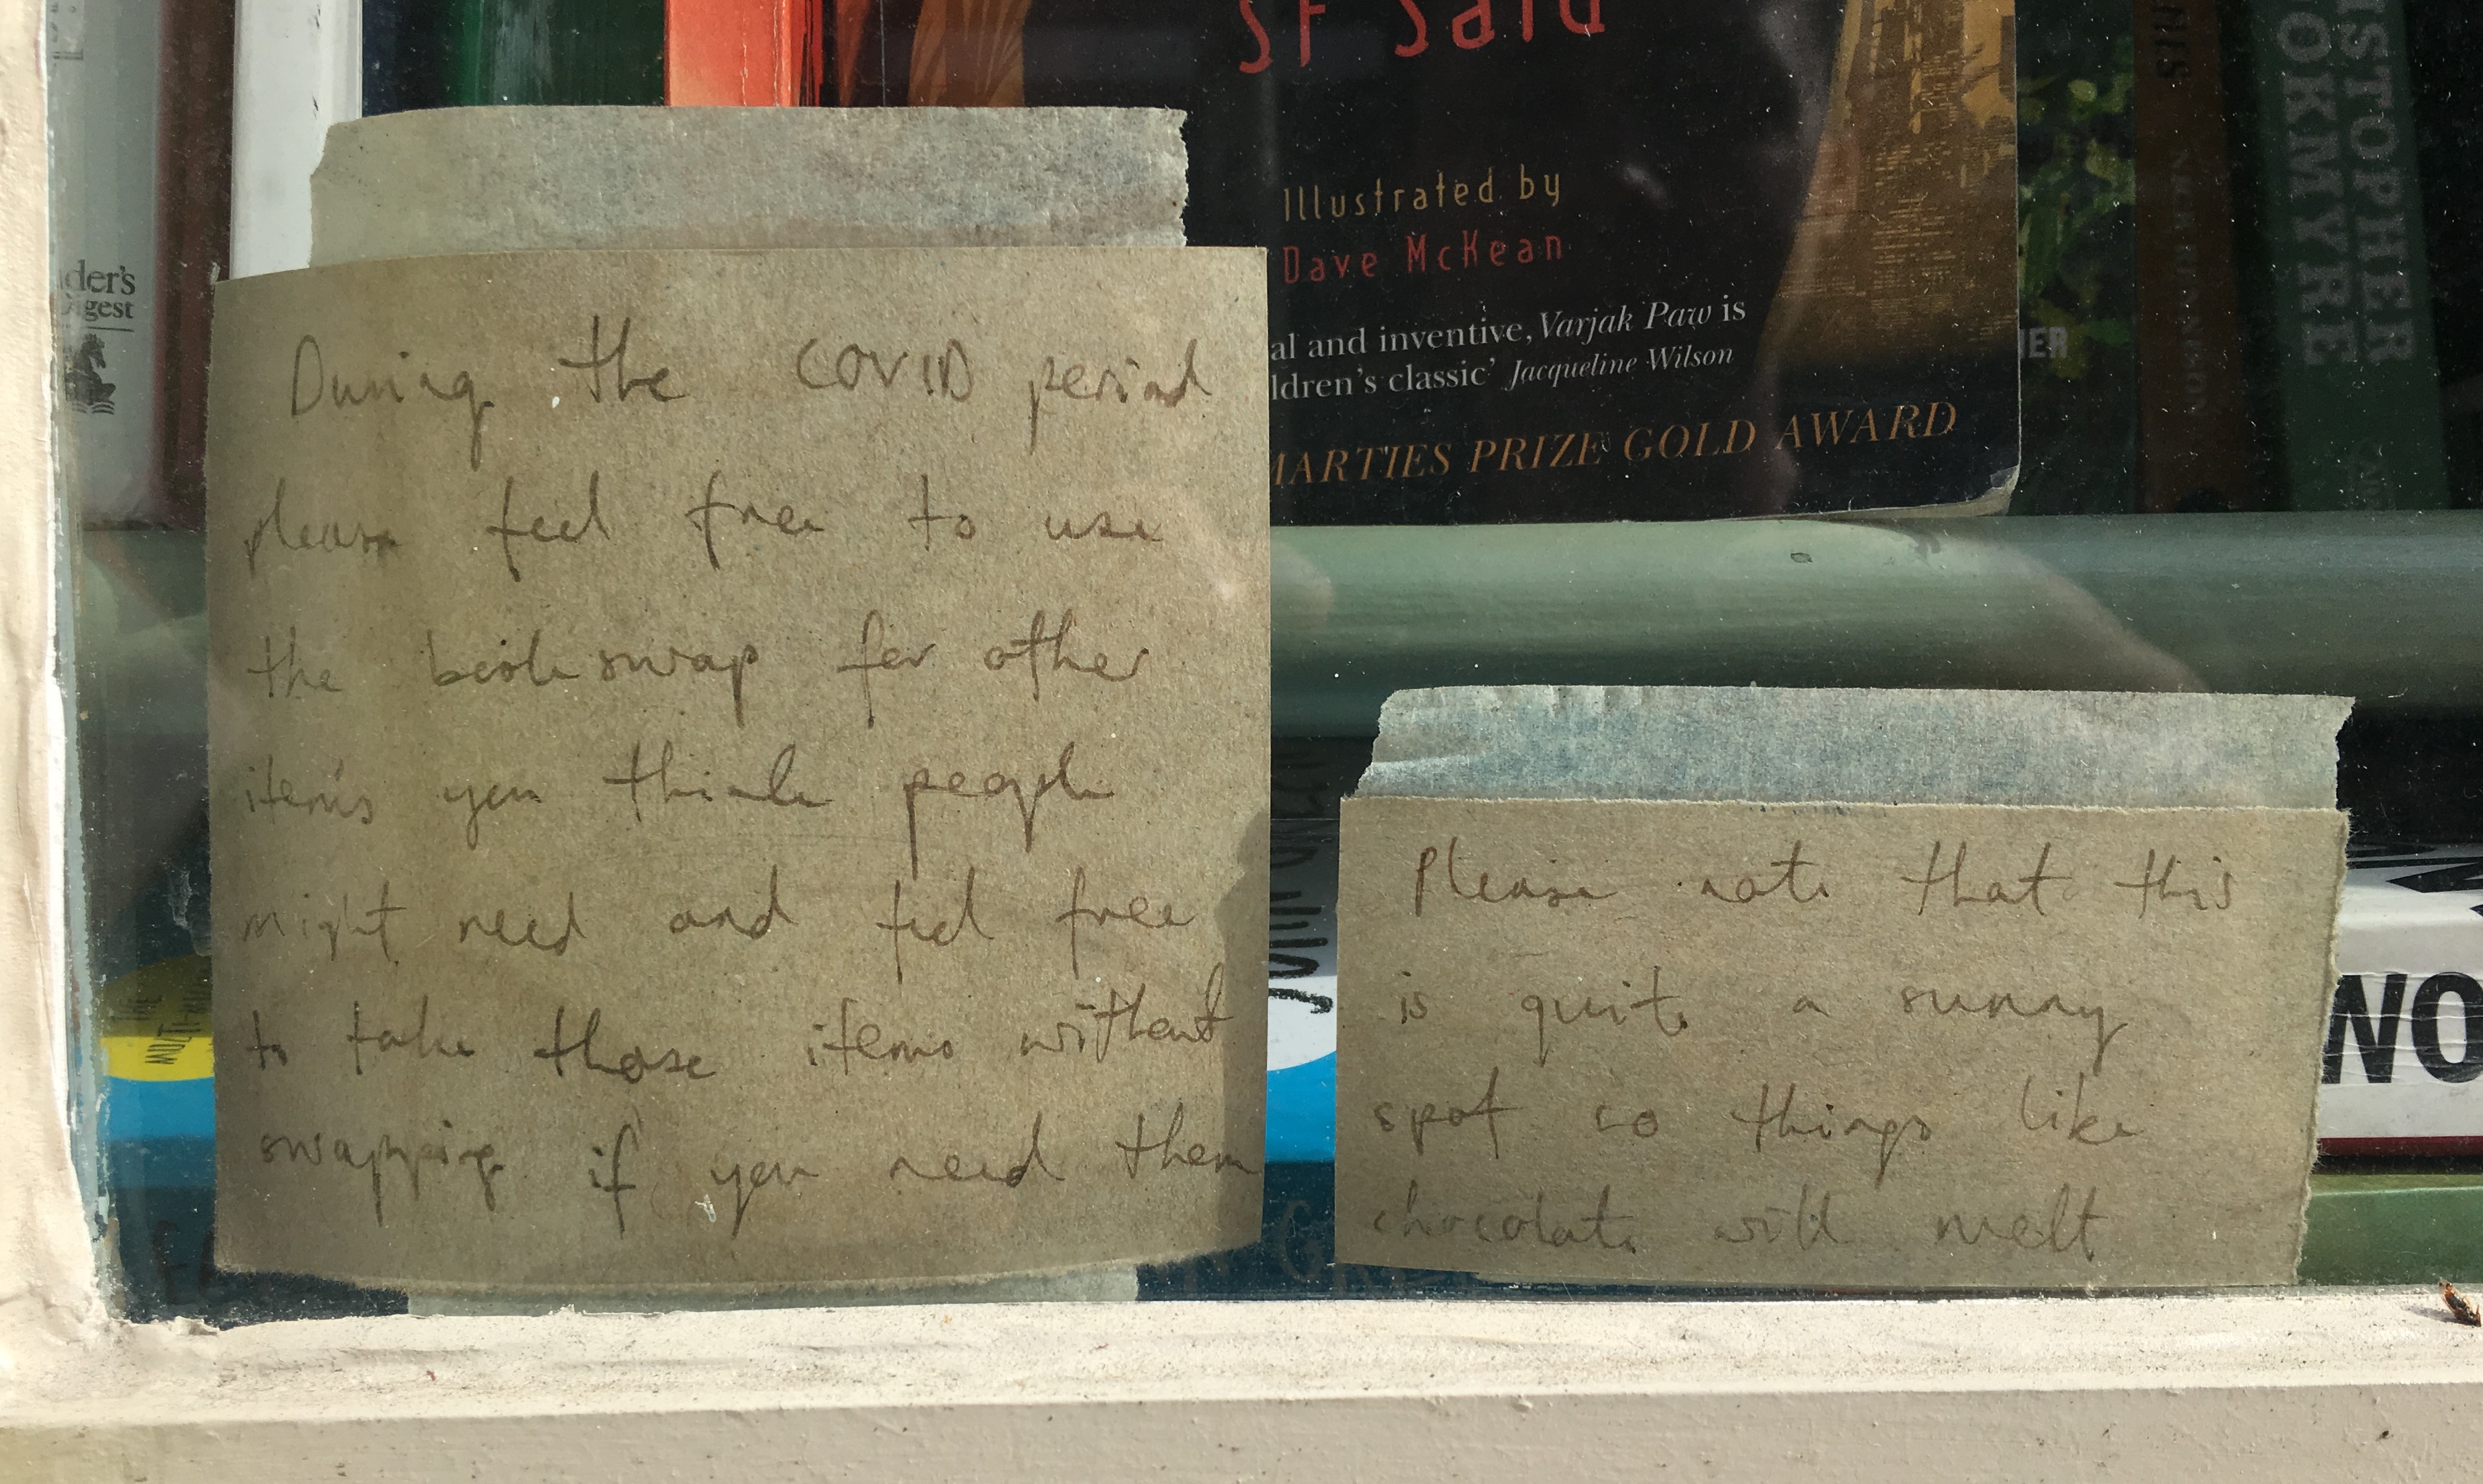 SF Said
Illustrated by
Dave McKean
al and inventive, Varjak Paw is
ldren's classic' Jacqueline Wilson
MARTIES PRIZE GOLD AWARD
der's
igest
During the COVID period
please feel free to use
the bookswap for other
items you think people
might need and feel free
to take those items without
swapping if you need them
Please note that this
is quite a sunny
spot so things like
chocolate will melt
ISTOPHER
OKMYRE
IER
WO